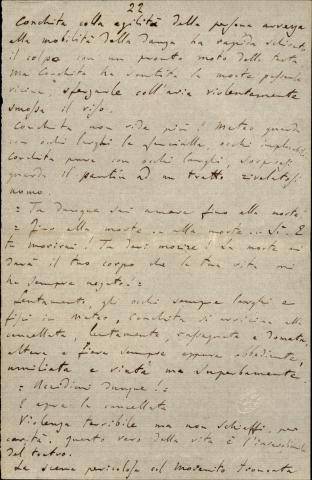 22
Conchita colla agilità della persona avvezza
alla mobilità della danza ha rapida schivato
il colpo con un pronto moto della testa
ma Conchita ha sentita la morte passarle
vicina sfregarle coll'aria violentemente
smossa il viso.
Conchita non ride più! Mateo guarda
con occhi larghi la fanciulla, occhi implacabili
Conchita pure con occhi larghi, sorpresi
guarda il ad un tratto rivelatosi
uomo.
= Tu dunque sai amare fino alla morte?
= Fino alla morte... alla morte... Sì. E
tu morirai! Tu devi morire! La morte mi
darà il tuo corpo che la tua vita mi
ha sempre negato! =
Lentamente, gli occhi sempre larghi e
fissi in Mateo, Conchita si avvicina alla
cancellata, lentamente, rassegnata e domata.
Altera e fiera sempre eppure obbediente,
umiliata e vinta ma superbamente.
= Uccidimi dunque! =
E apre la cancellata
Violenza terribile ma non schiaffi, per
carità, questo vero della vita è l'
del teatro.
La scena pericolosa col Morenito troncata